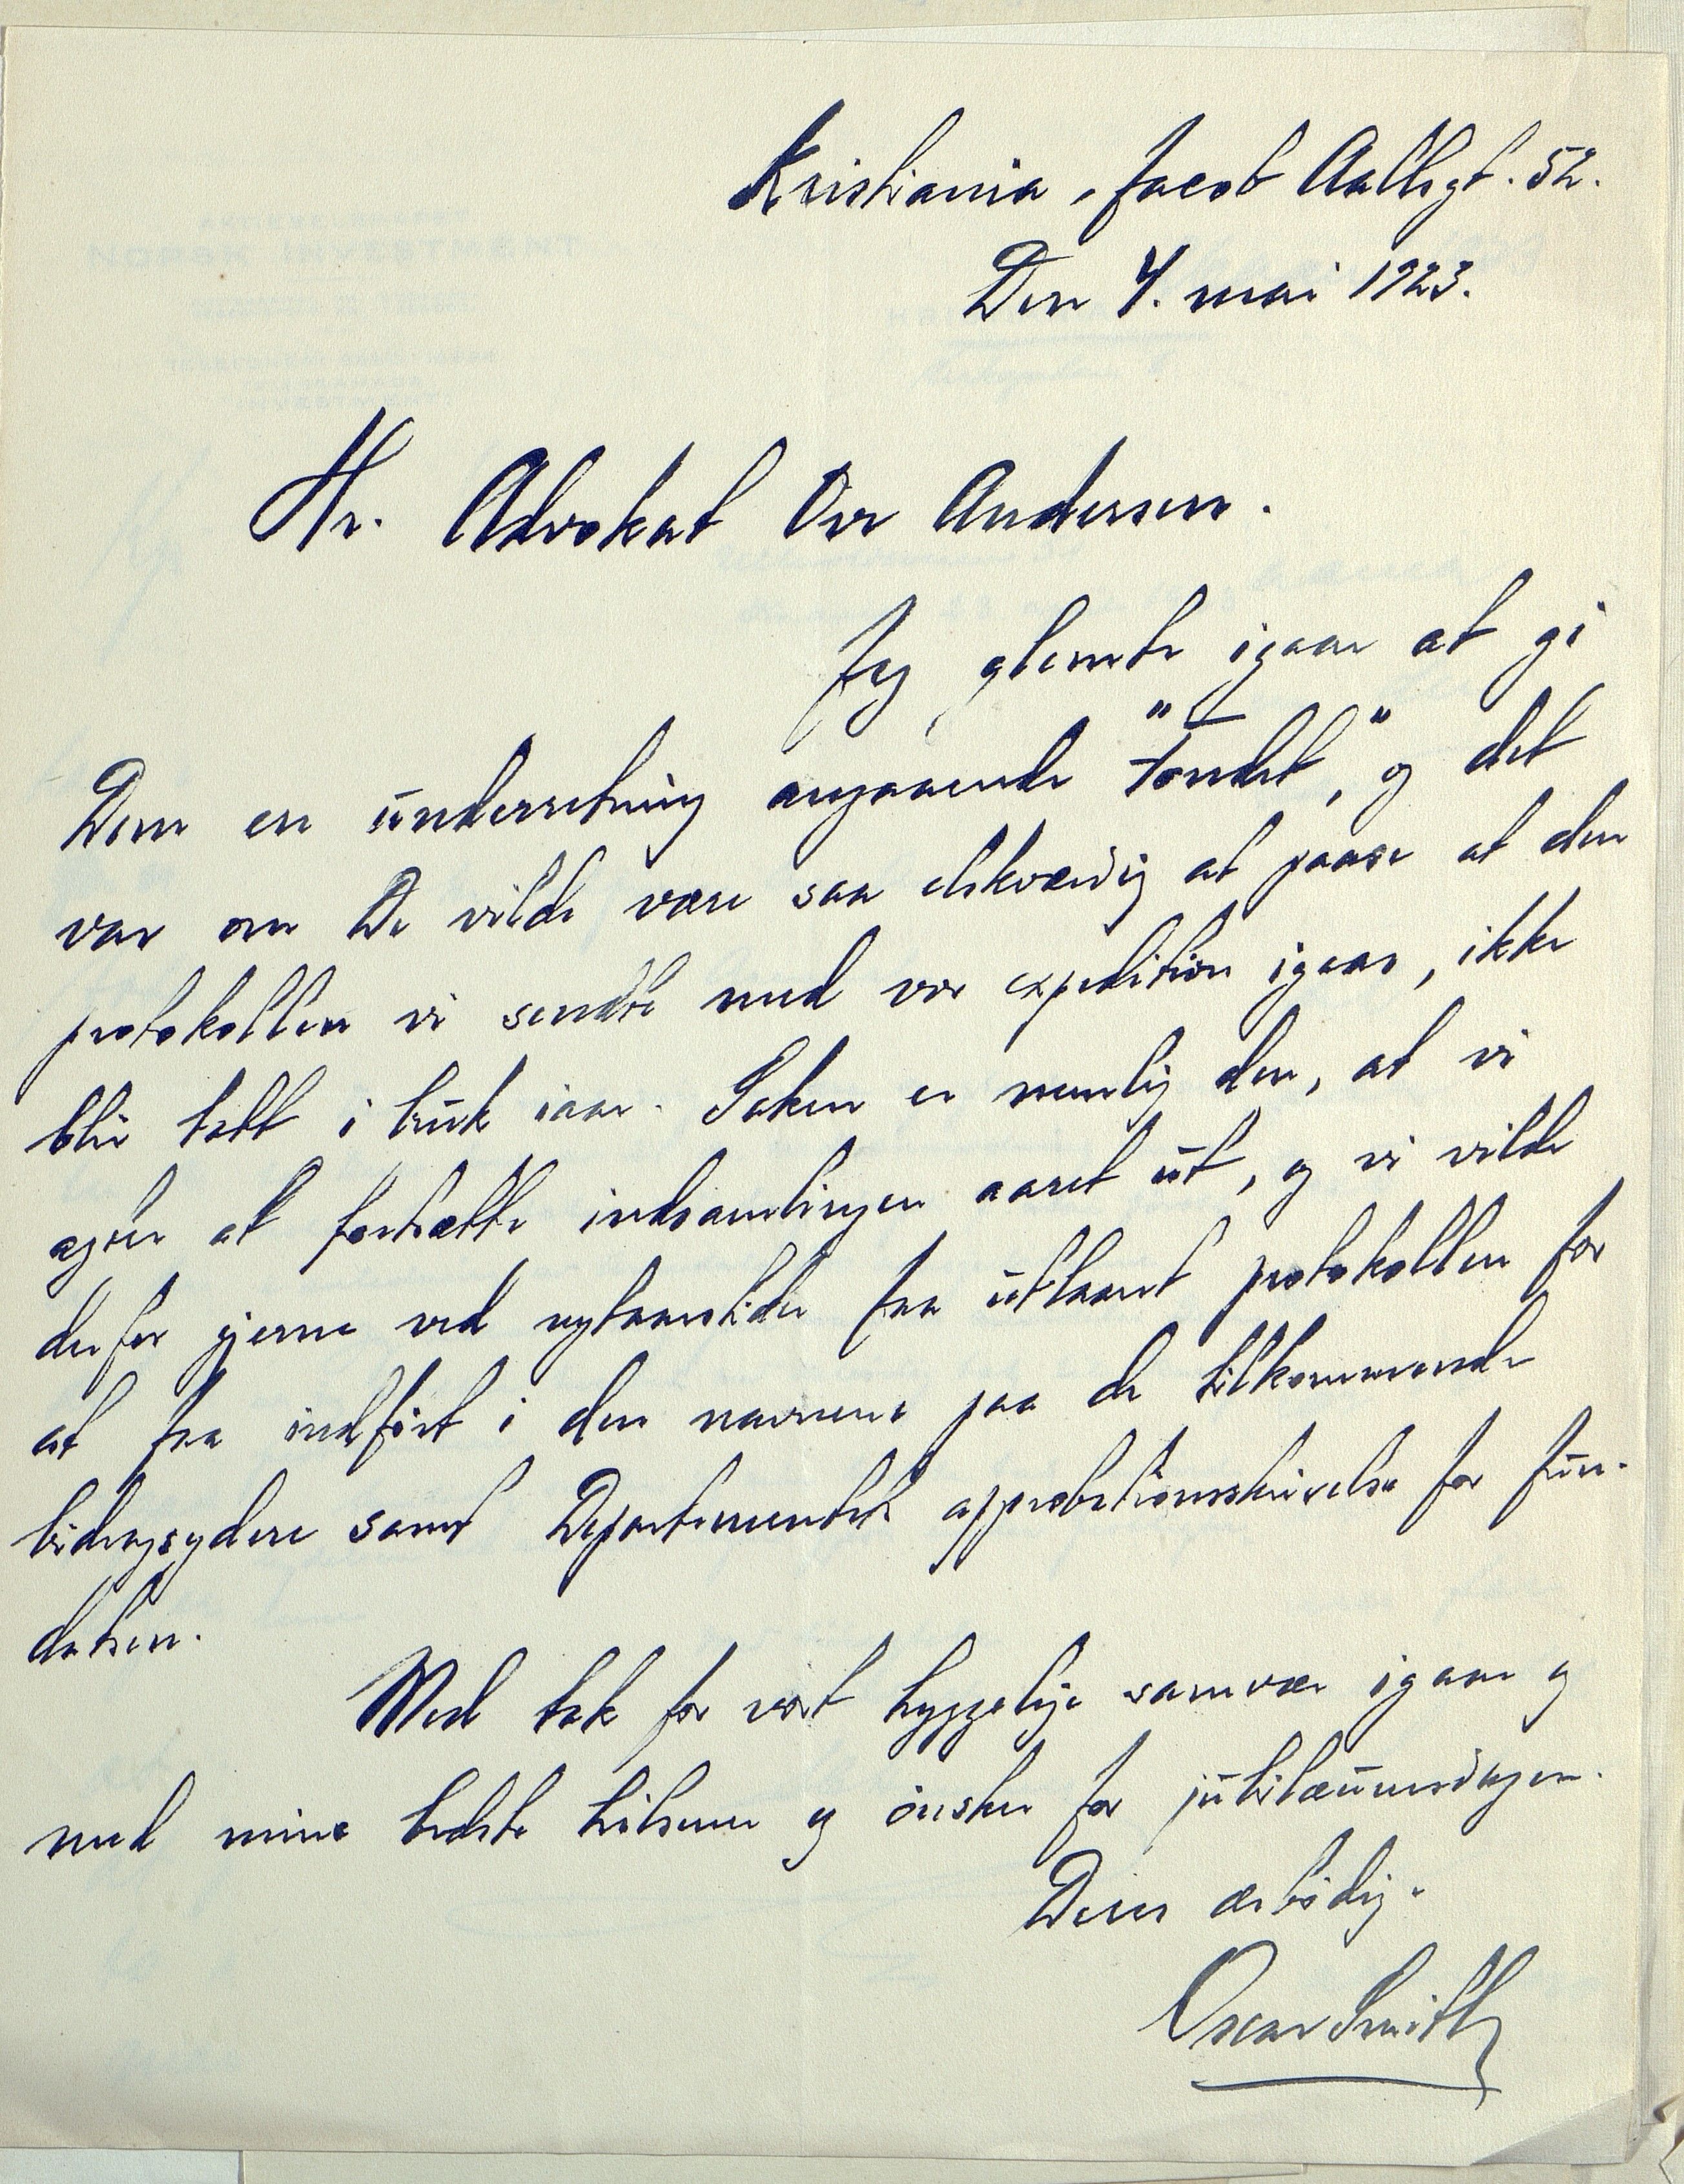 Kristiania, Jacob Aallsgt. 52.
Den 4. mai 1923.
Hr. Advokat Ove Andersen.
Jeg glemte igaar at gi
Dem en underretning angaaende "Fondet", og det
var om De vilde være saa elskværdig at paase at den
protokollen vi sendte med vor expedition igaar, ikke
blir tatt i bruk iaar. Saken er nemlig den, at vi
agter at fortsætte indsamlingen aaret ut, og vi vilde
derfor gjerne ved nytaarstider faa utlaant protokollen for
at faa indført i den navnene paa de tilkommende
bidragsydere samt Departementets approbationsskrivelse for fun-
datsen.
Med tak for vort hyggelige samvær igaar og
med mine bedste hilsener og ønsker for jubilæumsdagen.
Deres ærbødig.
Oscar Smith